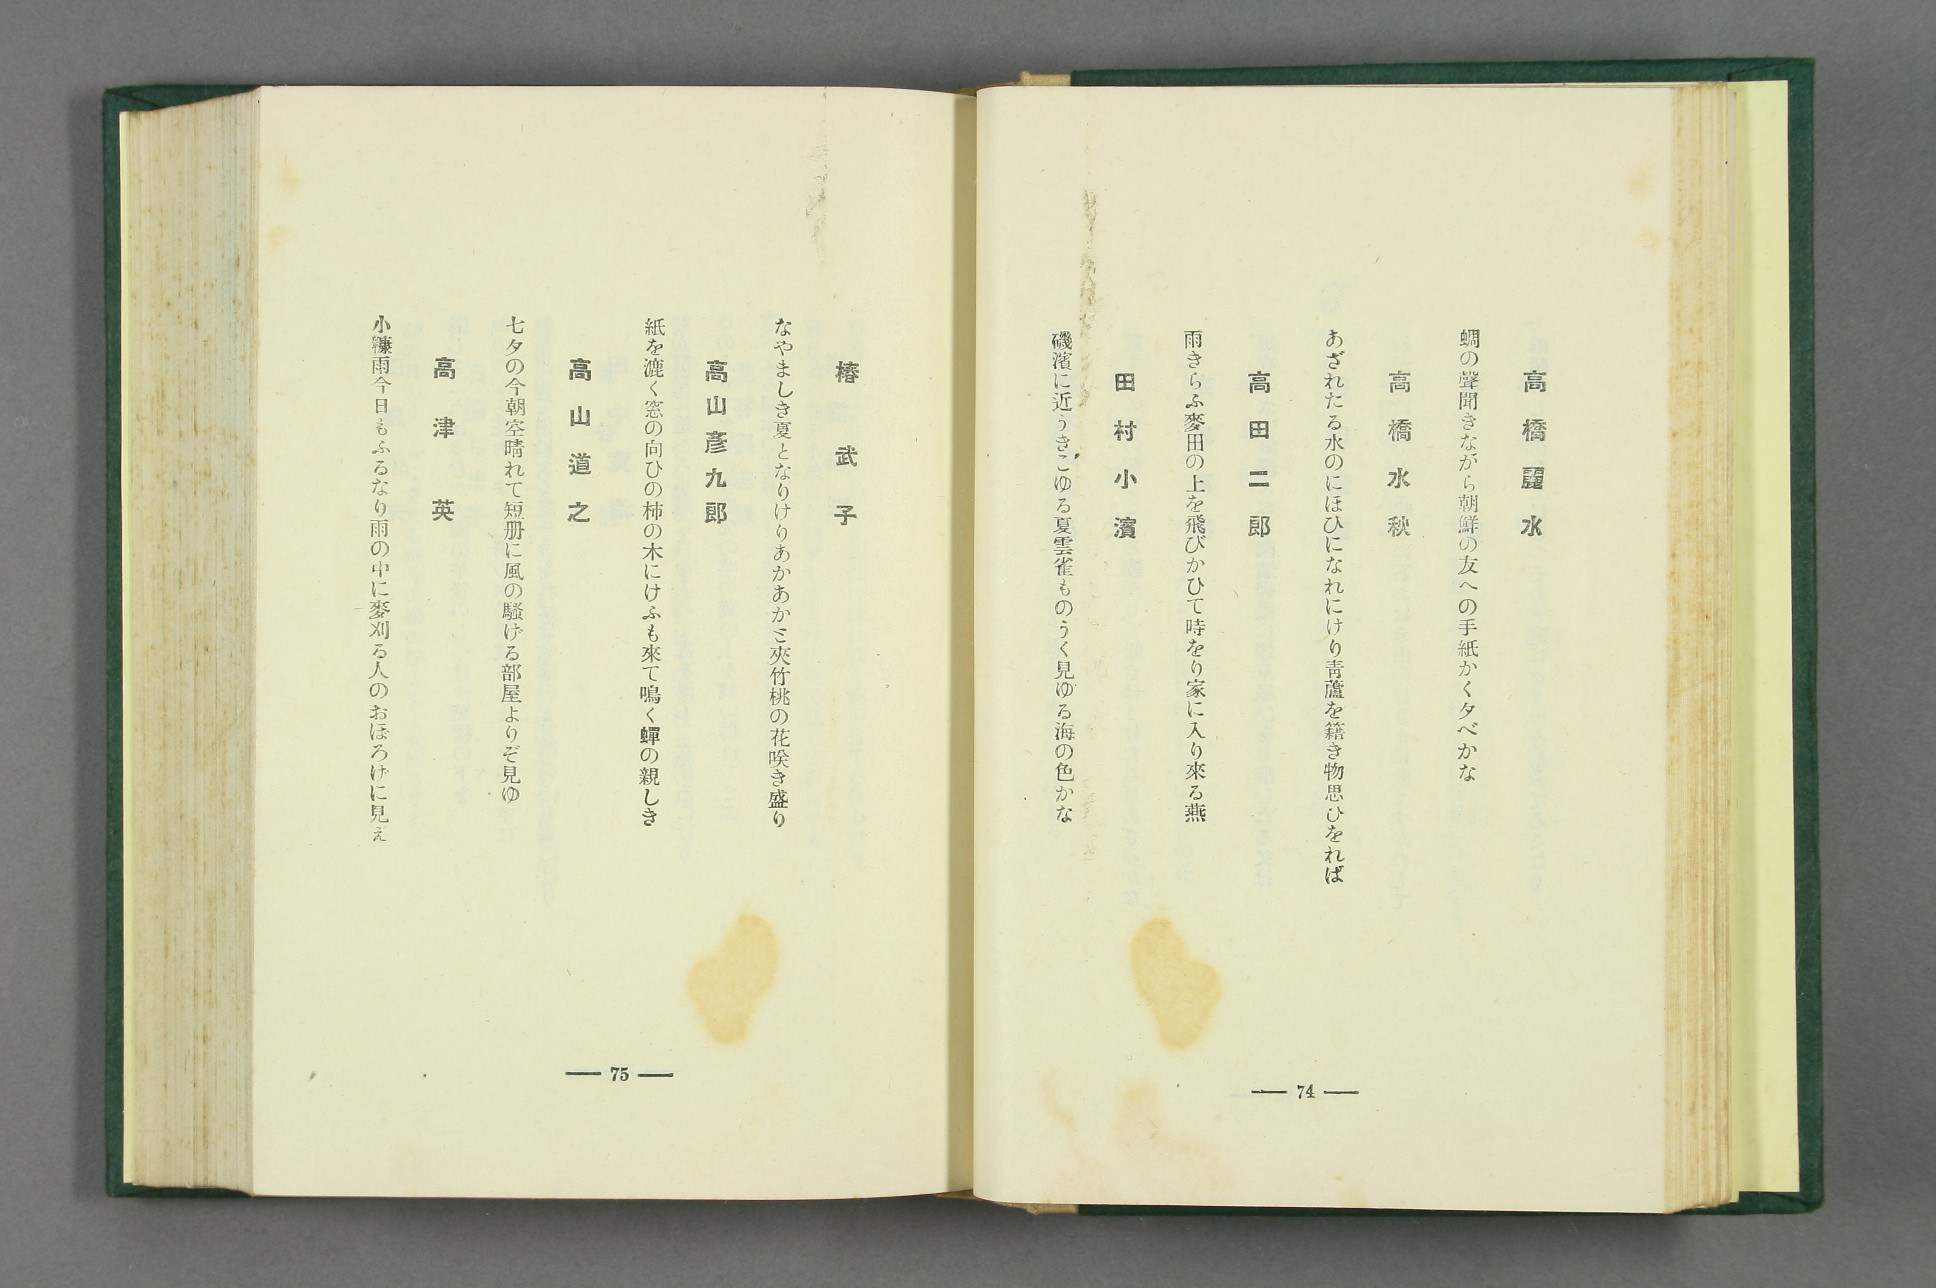 高橋麗水
蜩の聲聞きながら朝鮮の友への手紙かく夕べかな
高橋水秋
あざれたる水のにほひになれにけり靑蘆を籍き物思ひをれば
高田二郎
雨きらふ麥田の上を飛びかひて時をり家に入り來る燕
田村小濱
磯濱に近うきこゆる夏雲雀ものうく見ゆる海の色かな
— 74 —
椿武子
なやましき夏となりけりあかあかと夾竹桃の花咲き盛り
高山彥九郎
紙を漉く窓の向ひの柿の木にけふも來て鳴く蟬の親しき
高山道之
七夕の今朝空晴れて短册に風の騷げる部屋よりぞ見ゆ
高津英
小糠雨今日もふるなり雨の中に麥刈る人のおぼろげに見え
— 75 —